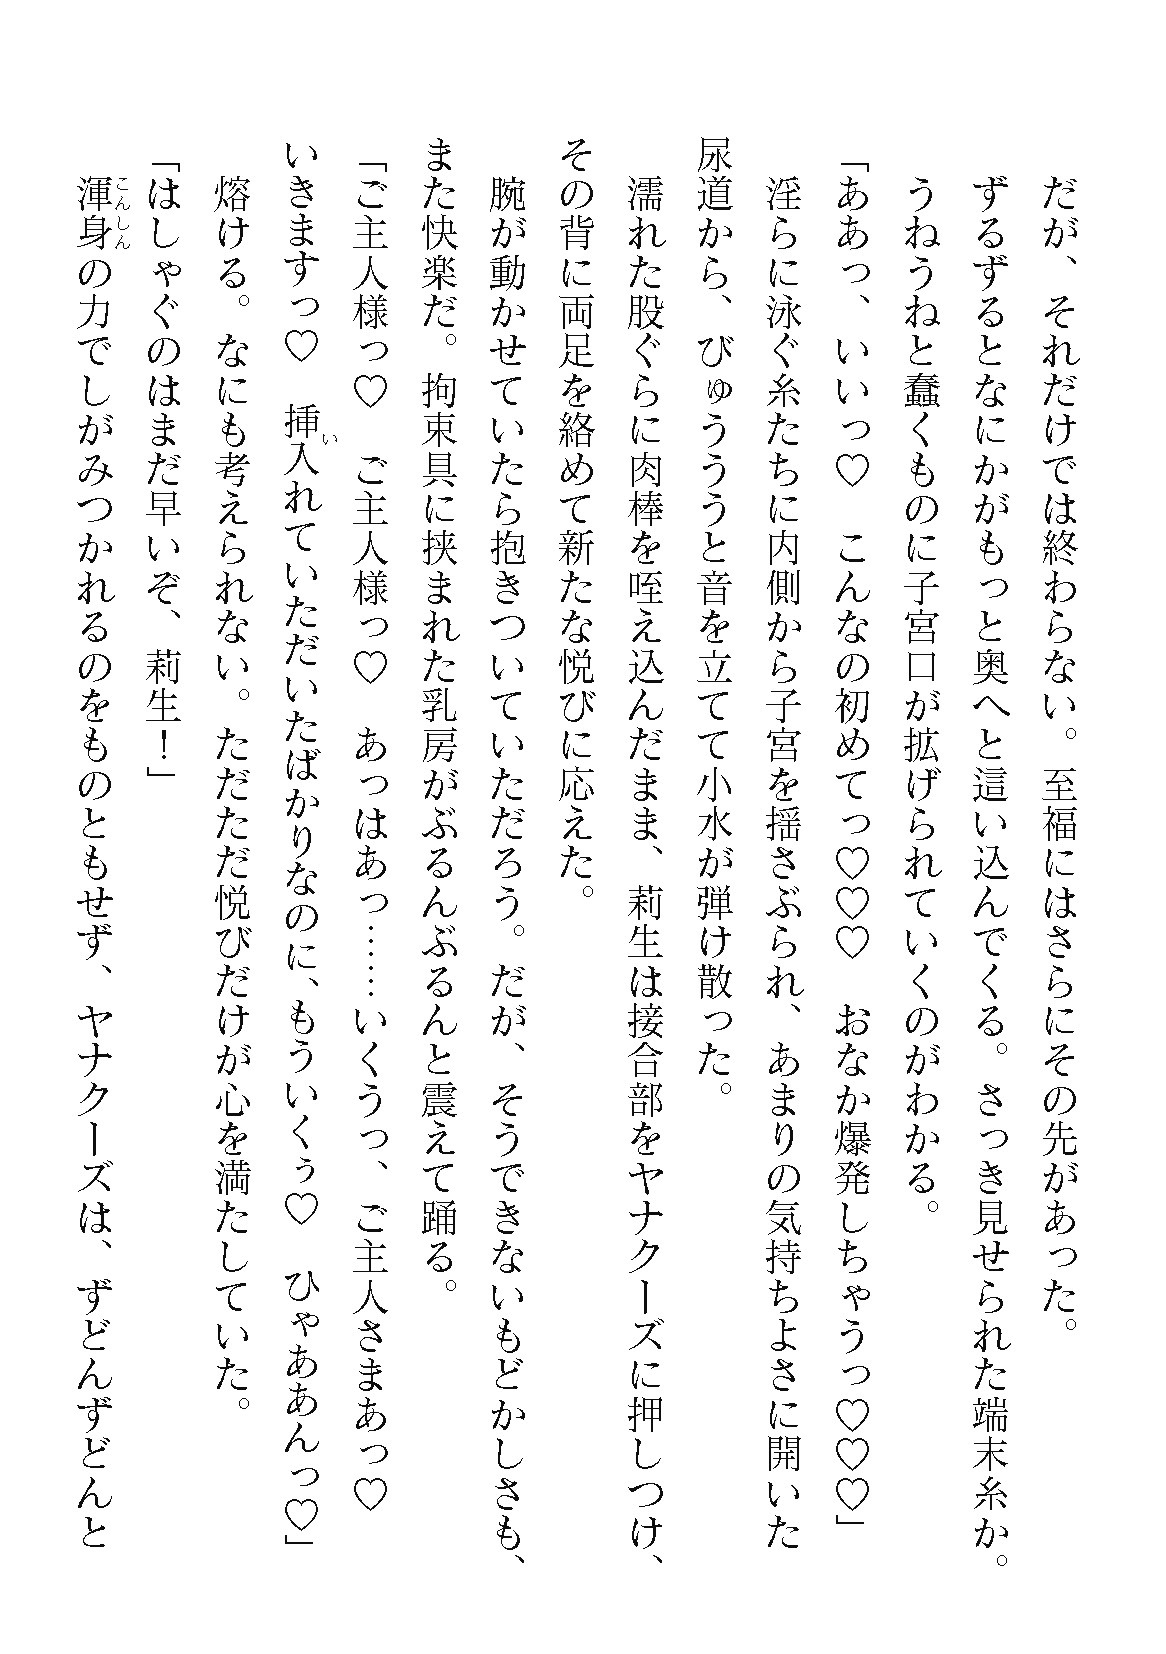 だが、それだけでは終わらない。至福にはさらにその先があった。
ずるずるとなにかがもっと奥へと這い込んでくる。さっき見せられた端末糸か。
うねうねと蠢くものに子宮口が拡げられていくのがわかる。
「ああっ、いいっ♡　こんなの初めてっ♡♡♡　おなか爆発しちゃうっ♡♡♡」
淫らに泳ぐ糸たちに内側から子宮を揺さぶられ、あまりの気持ちよさに開いた
尿道から、びゅうううと音を立てて小水が弾け散った。
濡れた股ぐらに肉棒を咥え込んだまま、莉生は接合部をヤナクーズに押しつけ、
その背に両足を絡めて新たな悦びに応えた。
腕が動かせていたら抱きついていただろう。だが、そうできないもどかしさも、
また快楽だ。拘束具に挟まれた乳房がぶるんぶるんと震えて踊る。
「ご主人様っ♡　ご主人様っ♡　あっはあっ……いくうっ、ご主人さまあっ♡
いきますっ♡　挿入れていただいたばかりなのに、もういくぅ♡　ひゃああんっ♡」
熔ける。なにも考えられない。ただただ悦びだけが心を満たしていた。
「はしゃぐのはまだ早いぞ、莉生！」
渾身の力でしがみつかれるのをものともせず、ヤナクーズは、ずどんずどんと